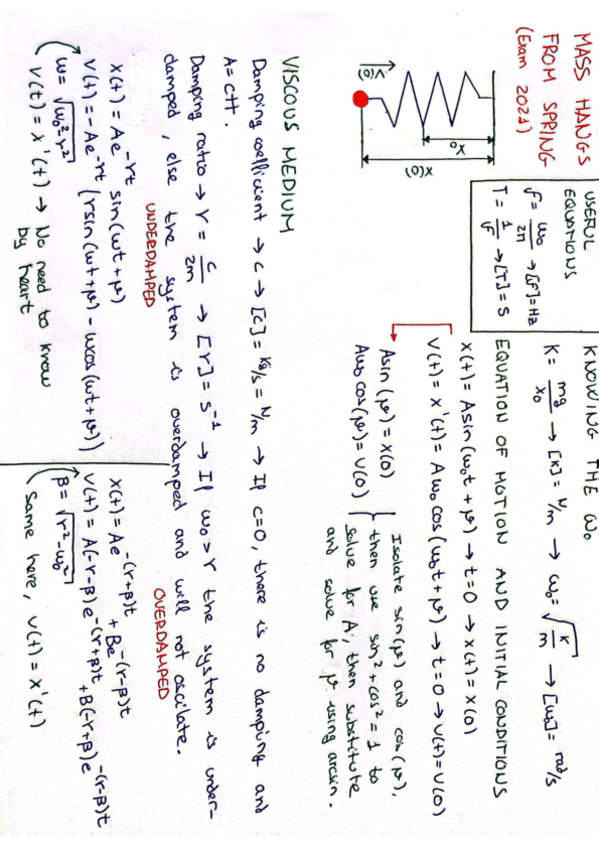 MASS HANGS
FROM SPRING
(Exam 2021)
v(0)
x₀
x(0)
USEFUL
EQUATIONS
f = ω₀/2π → [f] = Hz
T = 1/f → [T] = s
KNOWING THE ω₀
K = mg/x₀ → [K] = N/m → ω₀ = √(K/m) → [ω₀] = rad/s
EQUATION OF MOTION AND INITIAL CONDITIONS
x(t) = A sin(ω₀t + φ) → t=0 → x(t) = x(0)
v(t) = x'(t) = Aω₀ cos(ω₀t + φ) → t=0 → v(t) = v(0)
A sin(φ) = x(0)
Aω₀ cos(φ) = v(0)
Isolate sin(φ) and cos(φ),
then use sin² + cos² = 1 to
solve for A, then substitute
and solve for φ using arcsin.
VISCOUS MEDIUM
Damping coefficient → c → [c] = kg/s = N/m → If c=0, there is no damping and
A = ctt.
Damping ratio → r = c/2m → [r] = s⁻¹ → If ω₀ > r the system is under-
damped, else the system is overdamped and will not oscilate.
UNDERDAMPED
x(t) = Ae^-rt sin(ωt + φ)
v(t) = -Ae^-rt (r sin(ωt + φ) - ω cos(ωt + φ))
ω = √(ω₀² - r²)
v(t) = x'(t) → No need to know
by heart
OVERDAMPED
x(t) = Ae^-(r+β)t + Be^-(r-β)t
v(t) = A(-r-β)e^-(r+β)t + B(-r+β)e^-(r-β)t
β = √(r² - ω₀²)
(Same here, v(t) = x'(t)